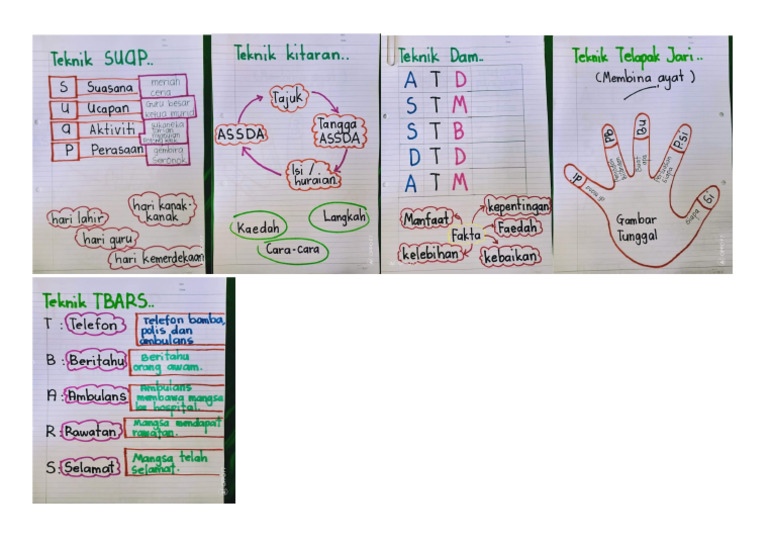 Teknik SUAP..
S Suasana meriah ceria
U Ucapan Guru besar ketua murid
a Aktiviti
P Perasaan gembira Seronok
hari lahir
hari kanak-kanak
hari guru
hari kemerdekaan
Teknik kitaran..
Tajuk
ASSDA
Tangga ASSDA
Isi / huraian
Kaedah
Langkah
Cara-Cara
Teknik Dam..
A T D
S T M
S T B
D T D
A T M
Manfaat
kepentingan
Fakta
Faedah
kelebihan
kebaikan
Teknik Telapak Jari..
(Membina ayat)
JP
Pb
Bu
P.Si
Si
Siapa
Gambar
Tunggal
Teknik TBARS..
T : Telefon Telefon bomba, polis dan ambulans
B : Beritahu Beritahu orang awam.
A : Ambulans Ambulans membawa mangsa ke hospital.
R : Rawatan Mangsa mendapat rawatan.
S : Selamat Mangsa telah selamat.